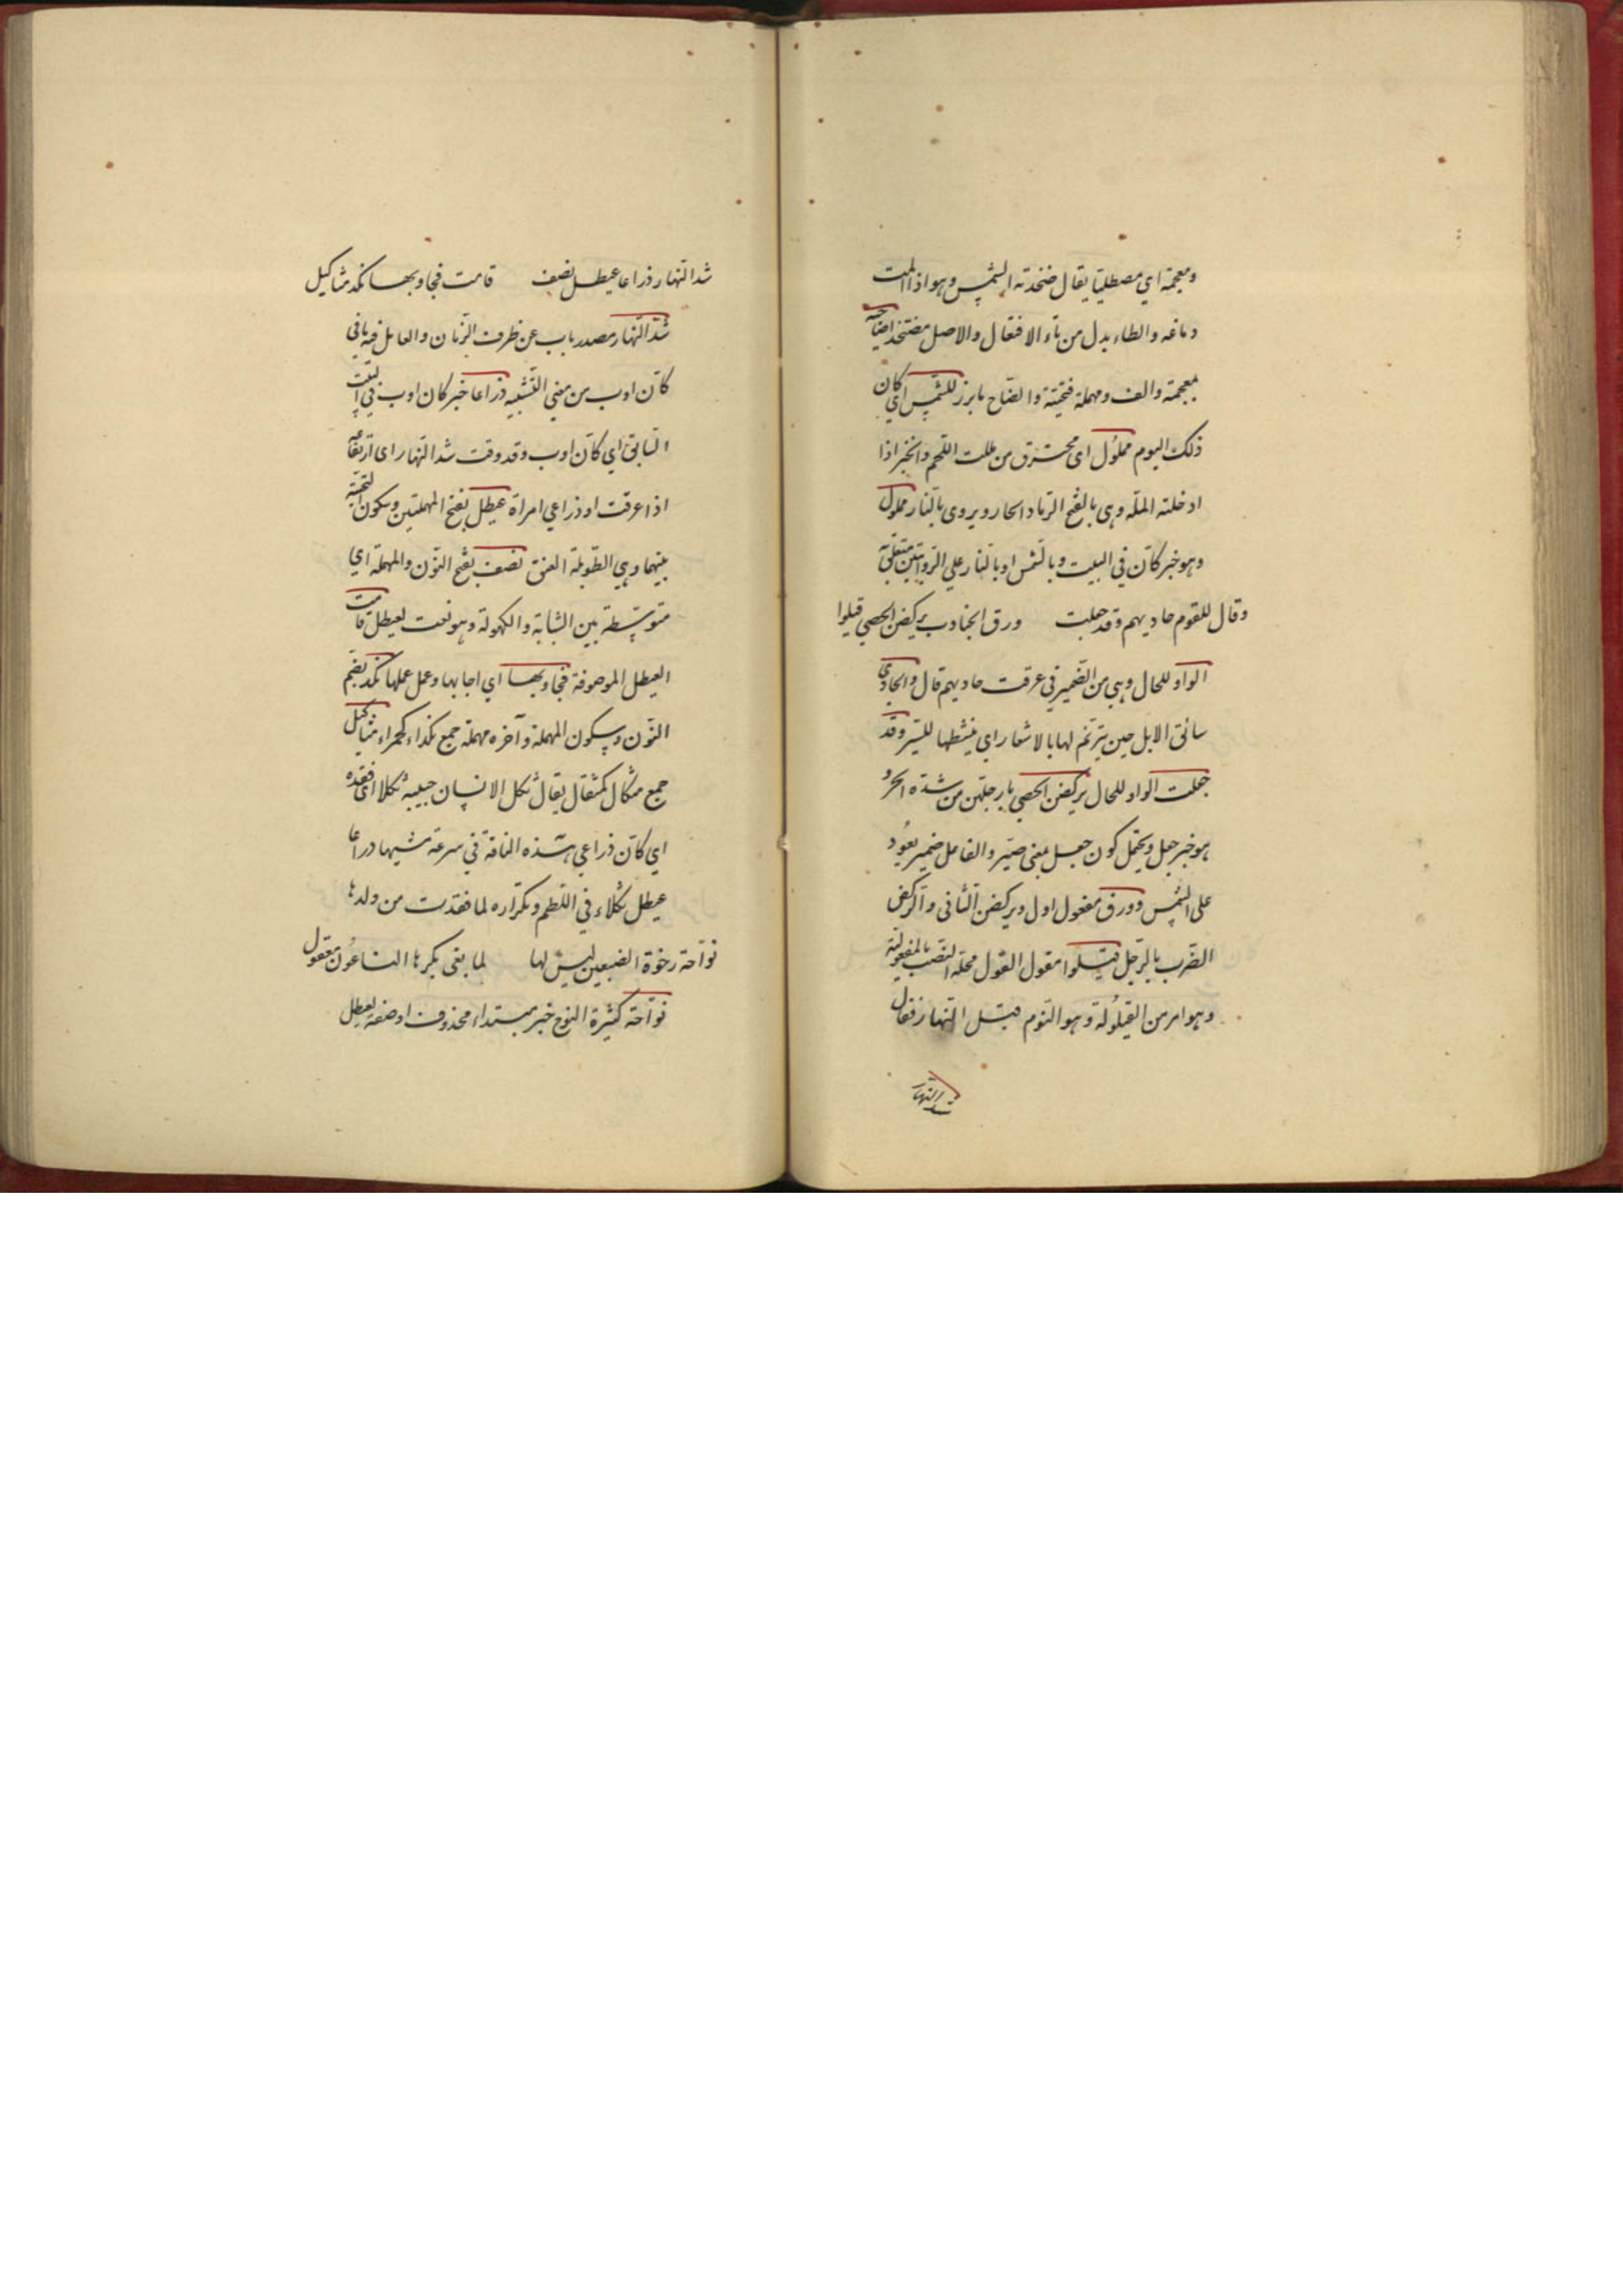 ومعجمة اي مصطليا يقال ضخدته الشمس وهو اذا المت
دماغه والطاء بدل من تاء الافتعال والاصل مضتخد اضاحيه
بمعجمة والف ومهملة فتحيتة والضاح ما برز للشمس اي كان
ذلك اليوم مملول اى محترق من مللت اللحم والخبز اذا
ادخلته الملة وهى بالفتح الرماد الحار ويروى بالنار مملول
وهو خبر كان في البيت وبالشمس او بالنار على الروايتين متعلق به
وقال للقوم حاديهم وقد جعلت ورق الجنادب يركضن الحصى قيلوا
الواو للحال وهي من الضمير في عرقت حاديهم قال والحادي
سائق الابل حين يترنم لها بالاشعار اي ينشطها للسير وقد
جعلت الواو للحال يركضن الحصى بارجلهن من شدة الحر و
هو خبر جعل ويحتمل كون جعل بمعنى صير والفاعل ضمير يعود
على الشمس وورق مفعول اول ويركضن الثاني والركض
الضرب بالرجل قيلوا مقول القول محله النصب بالمفعولية
وهو امر من القيلولة وهو النوم قبل النهار فقال
شد النهار
شد النهار ذراعا عيطل نصف قامت فجاوبها نكد مثاكيل
شد النهار مصدر ناب عن ظرف الزمان والعامل فيه ما في
كان اوب من معنى التشبيه ذراعا خبر كان اوب في البيت
السابق اي كان اوب وقد وقت شد النهار اى ارتفاعه
اذا عرقت اوذراعي امراة عيطل بفتح المهملتين وسكون التحتية
بينهما وهي الطويلة العنق نصف بفتح النون والمهملة اي
متوسطة بين الشابة والكهولة وهو نعت لعيطل قامت
العيطل الموصوفة فجاوبها اي اجابها وعمل عملها نكد بضم
النون وسكون المهملة وآخره مهملة جمع نكداء كحمراء مثاكيل
جمع مثكال كمثقال يقال ثكل الانسان حبيبه ثكلا اى فقده
اي كان ذراعي هذه الناقة في سرعة مشيها ذراعا
عيطل ثكلاء في اللطم وتكراره لما فقدت من ولدها
نواحة رخوة الضبعين ليس لها لما نعى بكرها الناعون معقول
نواحة كثيرة النوح خبر مبتداء محذوف او صفة لعيطل